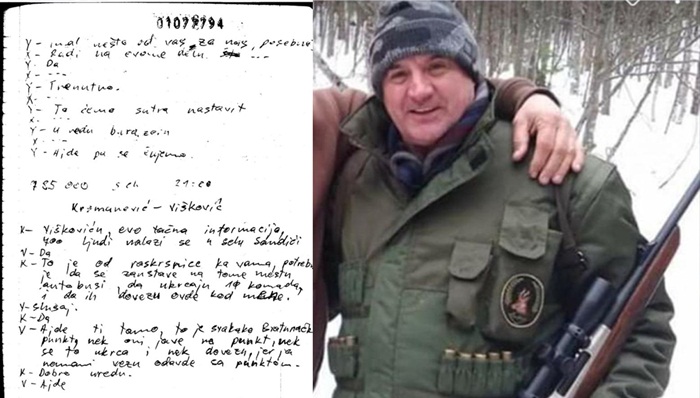 01077794
Y- imal nešto od vas za nas, posebno
X- Radi na ovome delu. ---
Y- Da
X- ---
Y- Trenutno.
X- ---
Y- To ćemo sutra nastavit
X- ---
Y- U redu burazain
X- ---
Y- Ajde pa se čujemo.
785 000 sch 21:00
Krsmanović - Višković
K- Viškoviću, evo tačna informacija,
400 ljudi nalazi se u selu Sandići
V- Da
K- To je od raskrsnice ka vama, potreb
je da se zaustave na tome mestu
autobusi da ukrcaju 10 komada,
i da ih dovezu ovde kod mene.
V- Slušaj.
K- Da
V- Ajde ti tamo, to je svakako Bratunačk
punkt, nek oni jave na punkt, nek
se to ukrca i nek dovezu, jer ja
nemam vezu odavde sa punktom.
K- Dobro uredu.
V- Ajde